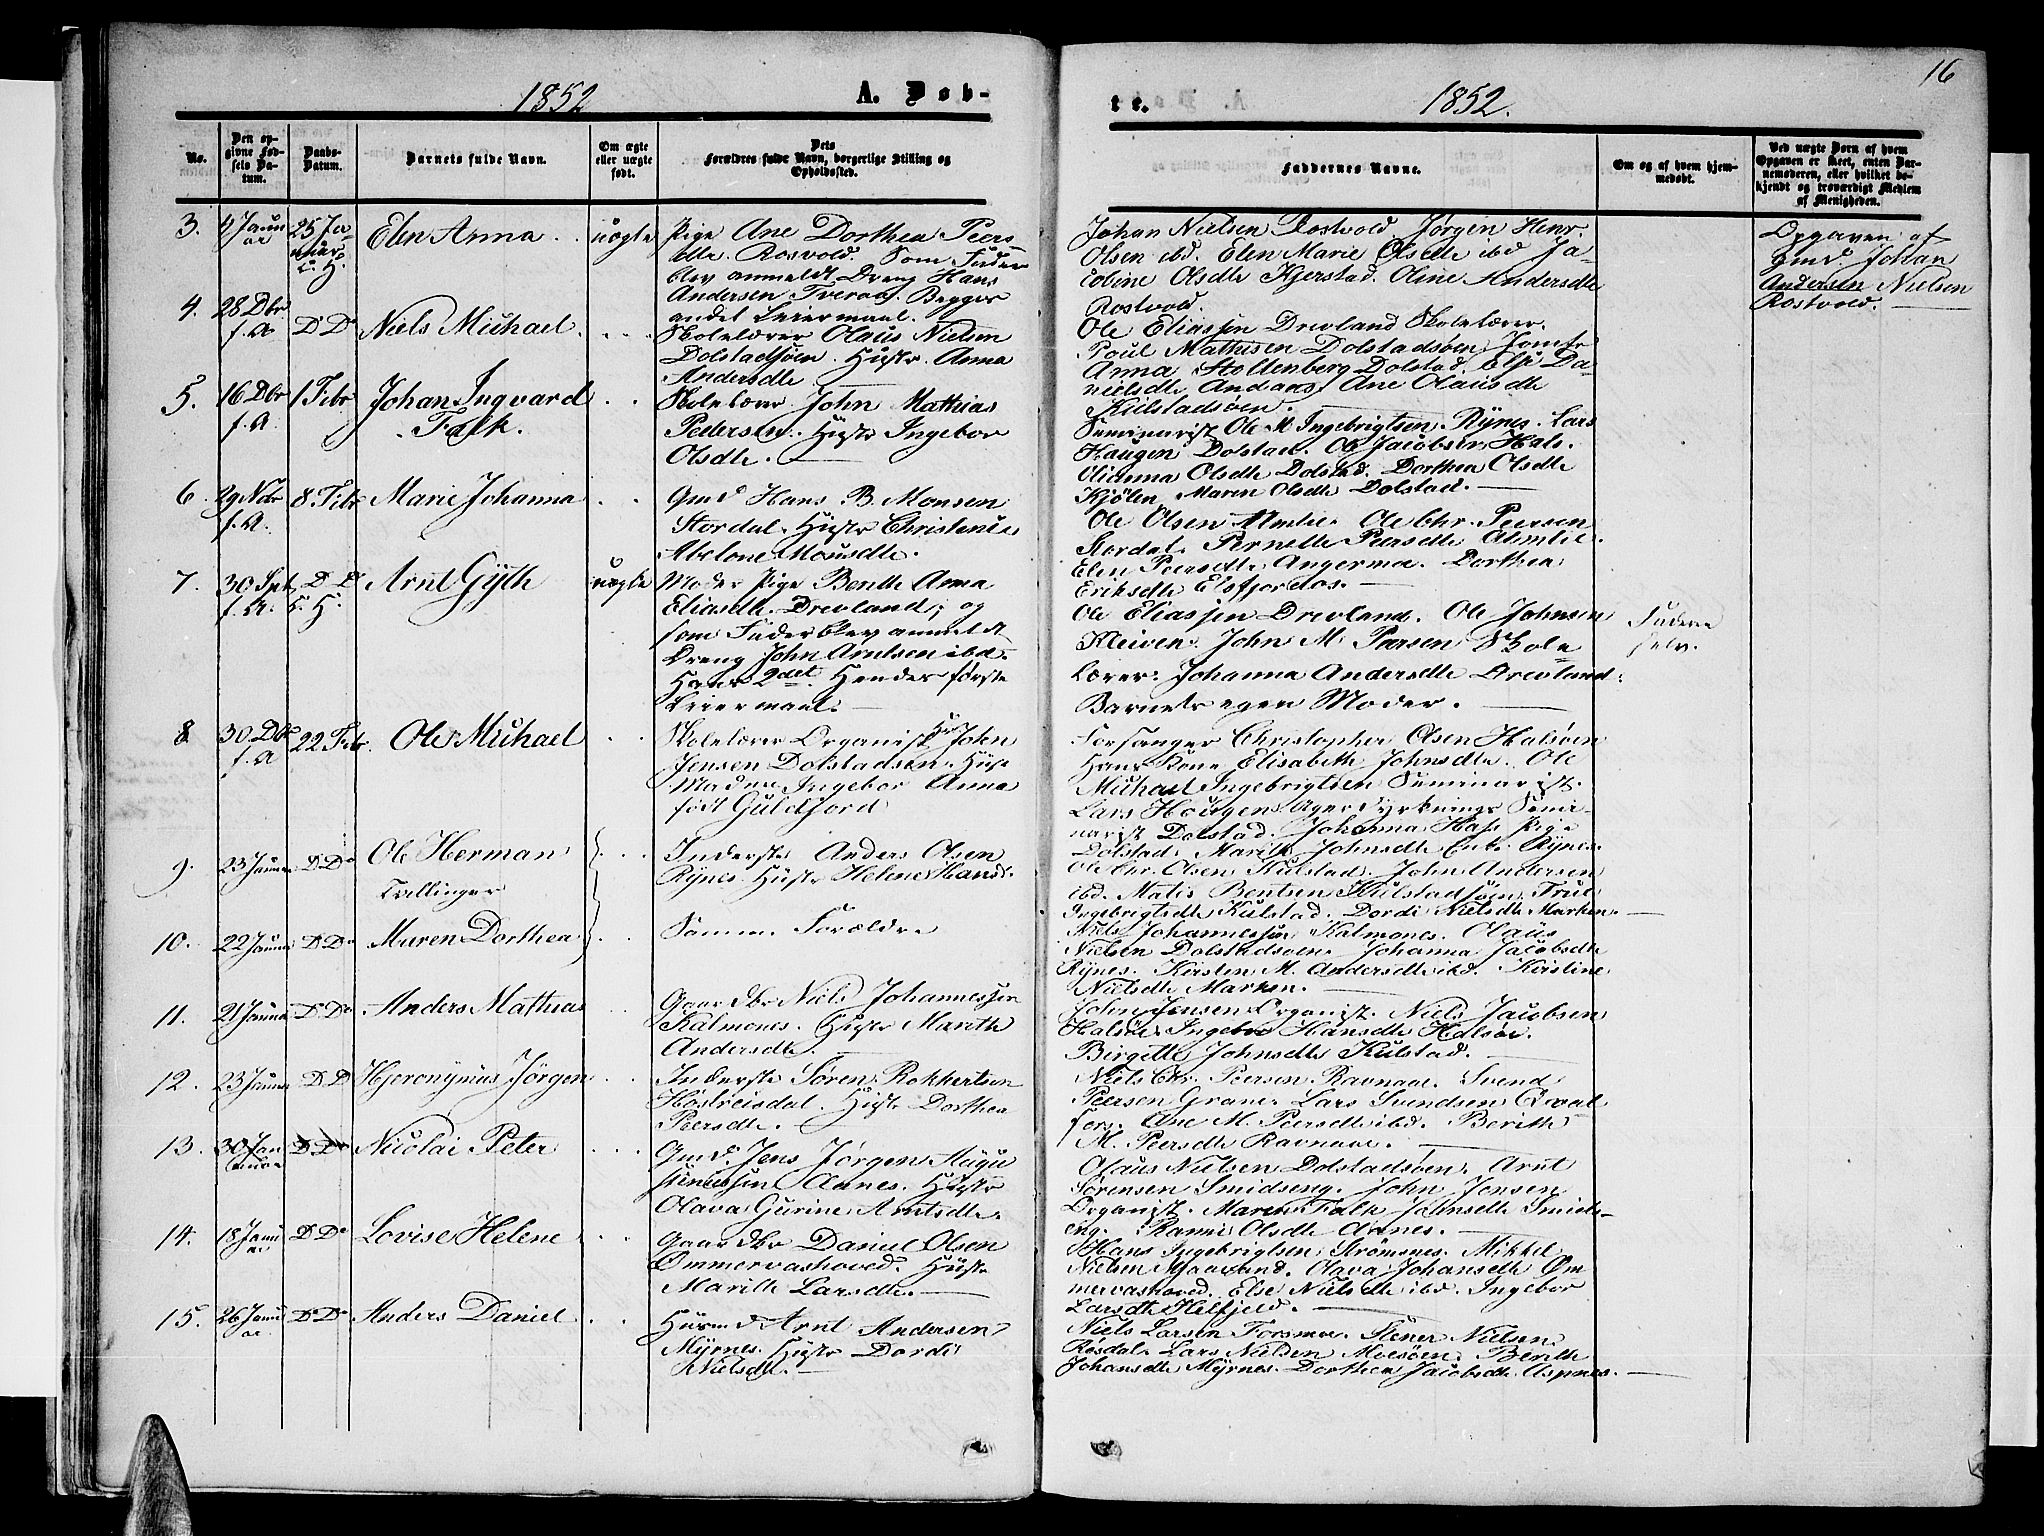 1852 A. Døb-
No.
Den op-
givne Fød-
sels Da-
tum.
Daabs-
Datum.
Barnets fulde Navn.
Om ægte
eller uægte
født.
Dets
Forældres fulde Navn, borgerlige Stilling og
Opholdssted.
3. 4 Janu
ar
25 Ja-
nuar
C. H.
Elen Anna
uægte
Pige Ane Dorthea Peers-
dtr Rosvold. Som Fader
blev anmeldt Dreng Hans
Andersen Tveraa. Begges
andet Leiermaal.
4. 28 Dbr
f. A.
D. Do
Niels Michael
Skolelærer Olaus Nielsen
Dolstadsøen. Hustr. Anna
Andersdtr
5. 16 Dbr
f. A.
1 Febr
Johan Ingvard
Falk.
Skolelærer John Mathias
Pedersen. Hustr Ingebor
Olsdtr.
6. 29 Nbr
f. A.
8 Febr
Marie Johanna
Gmd Hans B. Monsen
Stordal. Hustr Christense
Abelone Monsdtr.
7. 30 Spt
f. A.
D. D
C. H.
Arnt Gyth
uægte
Moder Pige Benthe Anna
Eliasdtr Drevland; og
som Fader blev anmeldt
Dreng John Arntsen ibd.
Hans 2det Hendes første
Leiermaal.
8 30 Dbr
f. A
22 Febr.
Ole Michael
Skolelærer Organist Hr John
Jensen Dolstadsøen. Hust
Madme Ingebor Anna
født Guldfjord
9. 23 Januar
D. Do
Ole Herman
Tallinger
Inderste Anders Olsen
Rynes. Hustr Helene Hansd.
10. 22 Januar
D. Do
Maren Dorthea
Samme Forældre
11. 21 Januar
D. Do
Anders Mathias
Gaardbr Niels Johannessen
Kalmones. Hustr Marith
Andersdtr.
12. 23 Januar
D. D
Hjeronymus Jørgen
Inderste Søren Rokkertsen
Hostreisdal. Hustr Dorthea
Peersdtr.
13. 30 Jan
uar
D. Do
Nicolai Peter
Gmd. Jens Jørgen Augu
stinussen Aanes. Hustr
Olava Gurine Arntsdtr.
14. 18 Janu
ar
D. Do
Lovise Helene
Gaardbr Daniel Olsen
Ømmervashoved. Hustr
Marith Larsdtr.
15. 26 Janu
ar
D. Do
Anders Daniel
Husmd Arnt Andersen
Myrnes. Hustr Dordi
Nielsdtr.
16
te. 1852.
Faddernes Navne.
Om og af hvem hjem-
medøbt.
Ved uægte Børn af hvem
Opgaven er skeet, enten Bar-
nemoderen, eller hvilket be-
kjendt og troværdigt Medlem
af Menigheden.
Johan Nielsen Rostvold. Jørgin Henr.
Olsen ibd. Elen Marie Olsdtr ibd Ja-
cobine Olsdtr Kjerstad. Oline Andersdtr
Rostvold.
Opgaven af
Gmd. Johan
Andersen Nielsen
Rostvold.
Ole Eliassen Drevland Skolelærer.
Poul Mathisen Dolstadsøen, Jomfr
Anna Stoltenberg Dolstad. Else Da-
nielsdtr Andaas, Ane Olausdtr
Kulstadsøen.
Seminarist Ole M. Ingebrigtsen Rynes. Lars
Haugen Dolstad. Ole Jacobsen Hals.
Olianna Olsdtr Dolstad. Dorthea Olsdtr
Kjølen, Maren Olsdtr Dolstad.
Ole Olsen Almlie. Ole Chr. Peersen
Stordal. Pernelle Peersdtr Almlie.
Elen Peersdtr Angermo. Dorthea
Eriksdtr Elsfjordos.
Ole Eliassen Drevland. Ole Johnsen
Kleiven. John M. Peersen Skole
Lærer. Johanna Andersdtr Drevland.
Barnets egen Moder.
Faderen
selv.
Forsanger Christopher Olsen Halsøen
Hans Kone Elisabeth Johnsdtr. Ole
Michael Ingebrigtsen Seminarist.
Lars Hougen Agerdyrknings Semi-
narist Dolstad. Johanna Hass Pige
Dolstad. Marith Johnsdtr Enke Rynes.
Ole Chr. Olsen Kulstad. John Andersen
ibd. Matis Bentsen Kulstadsøen, Frue
Ingebrigtsdtr Kulstad. Dordi Nielsdtr Marken.
Niels Johannessen Kalmones. Olaus
Nielsen Dolstadsøen. Johanna Jacobsdtr
Rynes. Kirsten M. Andersdtr ibd. Kirstine
Nielsdtr Marken.
John Jensen Organist. Niels Jacobsen
Halsøe Ingebr Hansdtr Halsøe.
Birgitte Johnsdtr Kulstad.
Niels Chr. Peersen Ravnaae. Svend
Peersen Grane. Lars Svendsen Qval
fors. Ane M. Peersdtr ibd. Berith
M. Peersdtr Ravnaae.
Olaus Nielsen Dolstadsøen. Arnt
Sørensen Smidseng. John Jensen
Organist. Maren Falk Johnsdtr Smids-
eng. Olsdtr Aanes.
Hans Ingebrigtsen Strømsnes. Mikkel
Nielsen Mjaavand. Olava Johansdtr Øm
mervashoved. Else Nielsdtr ibd. Ingebor
Larsdtr Helfjeld.
Niels Larsen Forsmoe. Stener Nielsen
Røsdal. Lars Nielsen Moesøen. Berith
Johansdtr Myrnes. Dorthea Jacobsdtr Aspnes.